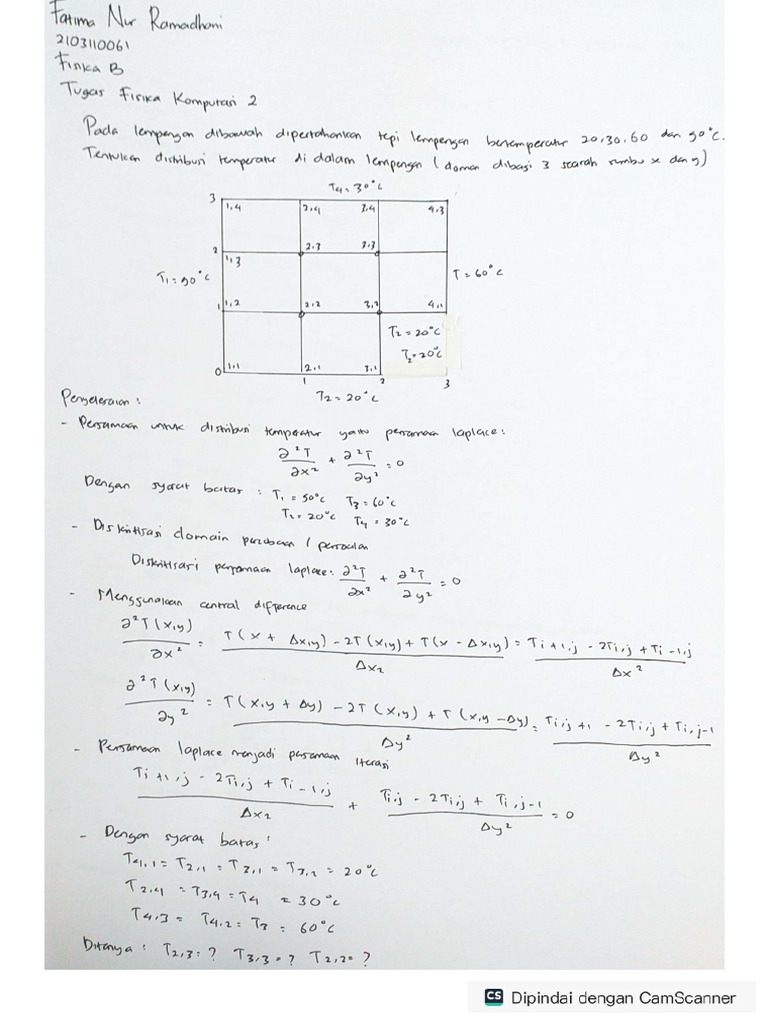 Fatima Nur Ramadhani
2103110061
Fisika B
Tugas Fisika Komputasi 2
Pada lempengan dibawah dipertahankan tepi lempengan bertemperatur 20, 30, 60 dan 50°C.
Tentukan distribusi temperatur di dalam lempengan (domain dibagi 3 searah sumbu x dan y)
T4 = 30°C
3 1,4 2,4 3,4 4,3
2,3 3,3
2
1,3
T1 = 50°C T = 60°C
1 1,2 2,2 3,2 4,2
T2 = 20°C
T2 = 20°C
0 1,1 2,1 3,1
1 2 3
T2 = 20°C
Penyelesaian :
- Persamaan untuk distribusi temperatur yaitu persamaan laplace :
∂²T/∂x² + ∂²T/∂y² = 0
Dengan syarat batas : T1 = 50°C T3 = 60°C
T2 = 20°C T4 = 30°C
- Diskritisasi domain /
Diskritisasi persamaan laplace : ∂²T/∂x² + ∂²T/∂y² = 0
- Menggunakan central difference
∂²T(x,y)/∂x² = T(x + Δx,y) - 2T(x,y) + T(x - Δx,y)/Δx2 = Ti+1,j - 2Ti,j + Ti-1,j/Δx²
∂²T(x,y)/∂y² = T(x,y + Δy) - 2T(x,y) + T(x,y - Δy)/Δy² = Ti,j+1 - 2Ti,j + Ti,j-1/Δy²
- Persamaan laplace menjadi persamaan iterasi
Ti+1,j - 2Ti,j + Ti-1,j/Δx2 + Ti,j - 2Ti,j + Ti,j-1/Δy² = 0
- Dengan syarat batas :
T4,1 = T2,1 = T3,1 = T3,2 = 20°C
T2,4 = T3,4 = T4 = 30°C
T4,3 = T4,2 = T3 = 60°C
Ditanya : T2,3 = ? T3,3 = ? T2,2 = ?
CS Dipindai dengan CamScanner